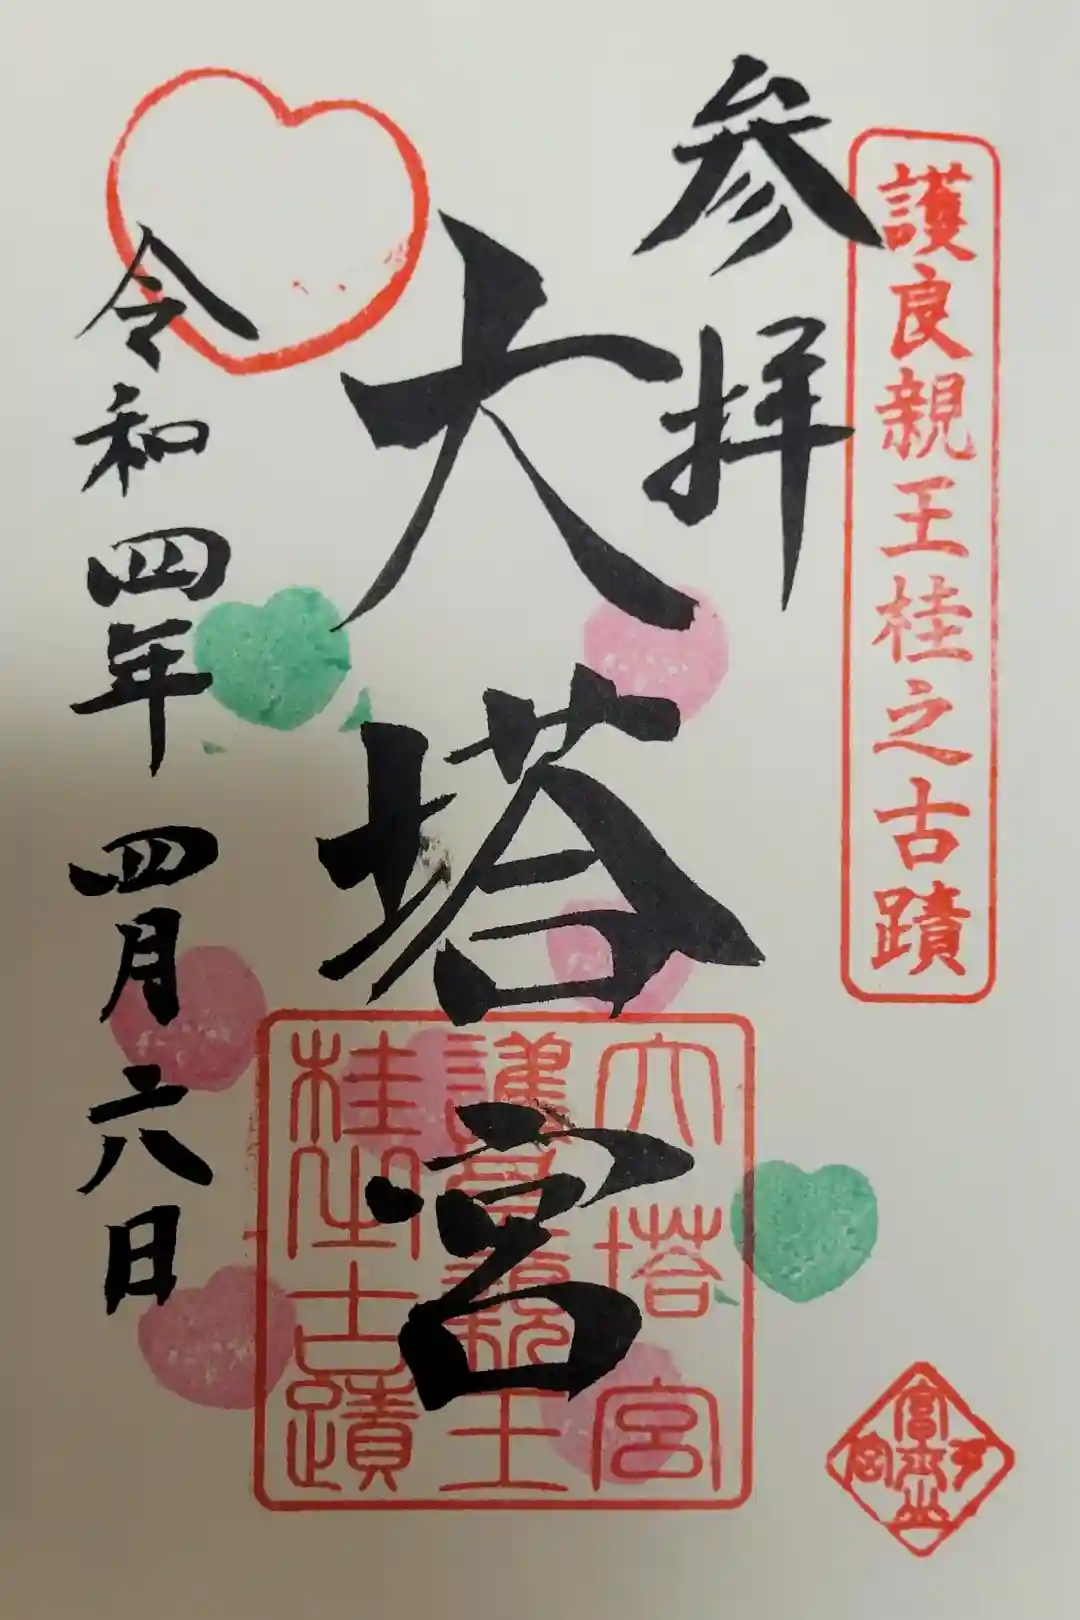 護良親王桂之古蹟
参拝
大塔宮
令和四年四月六日
大塔宮
護良親王
桂古蹟